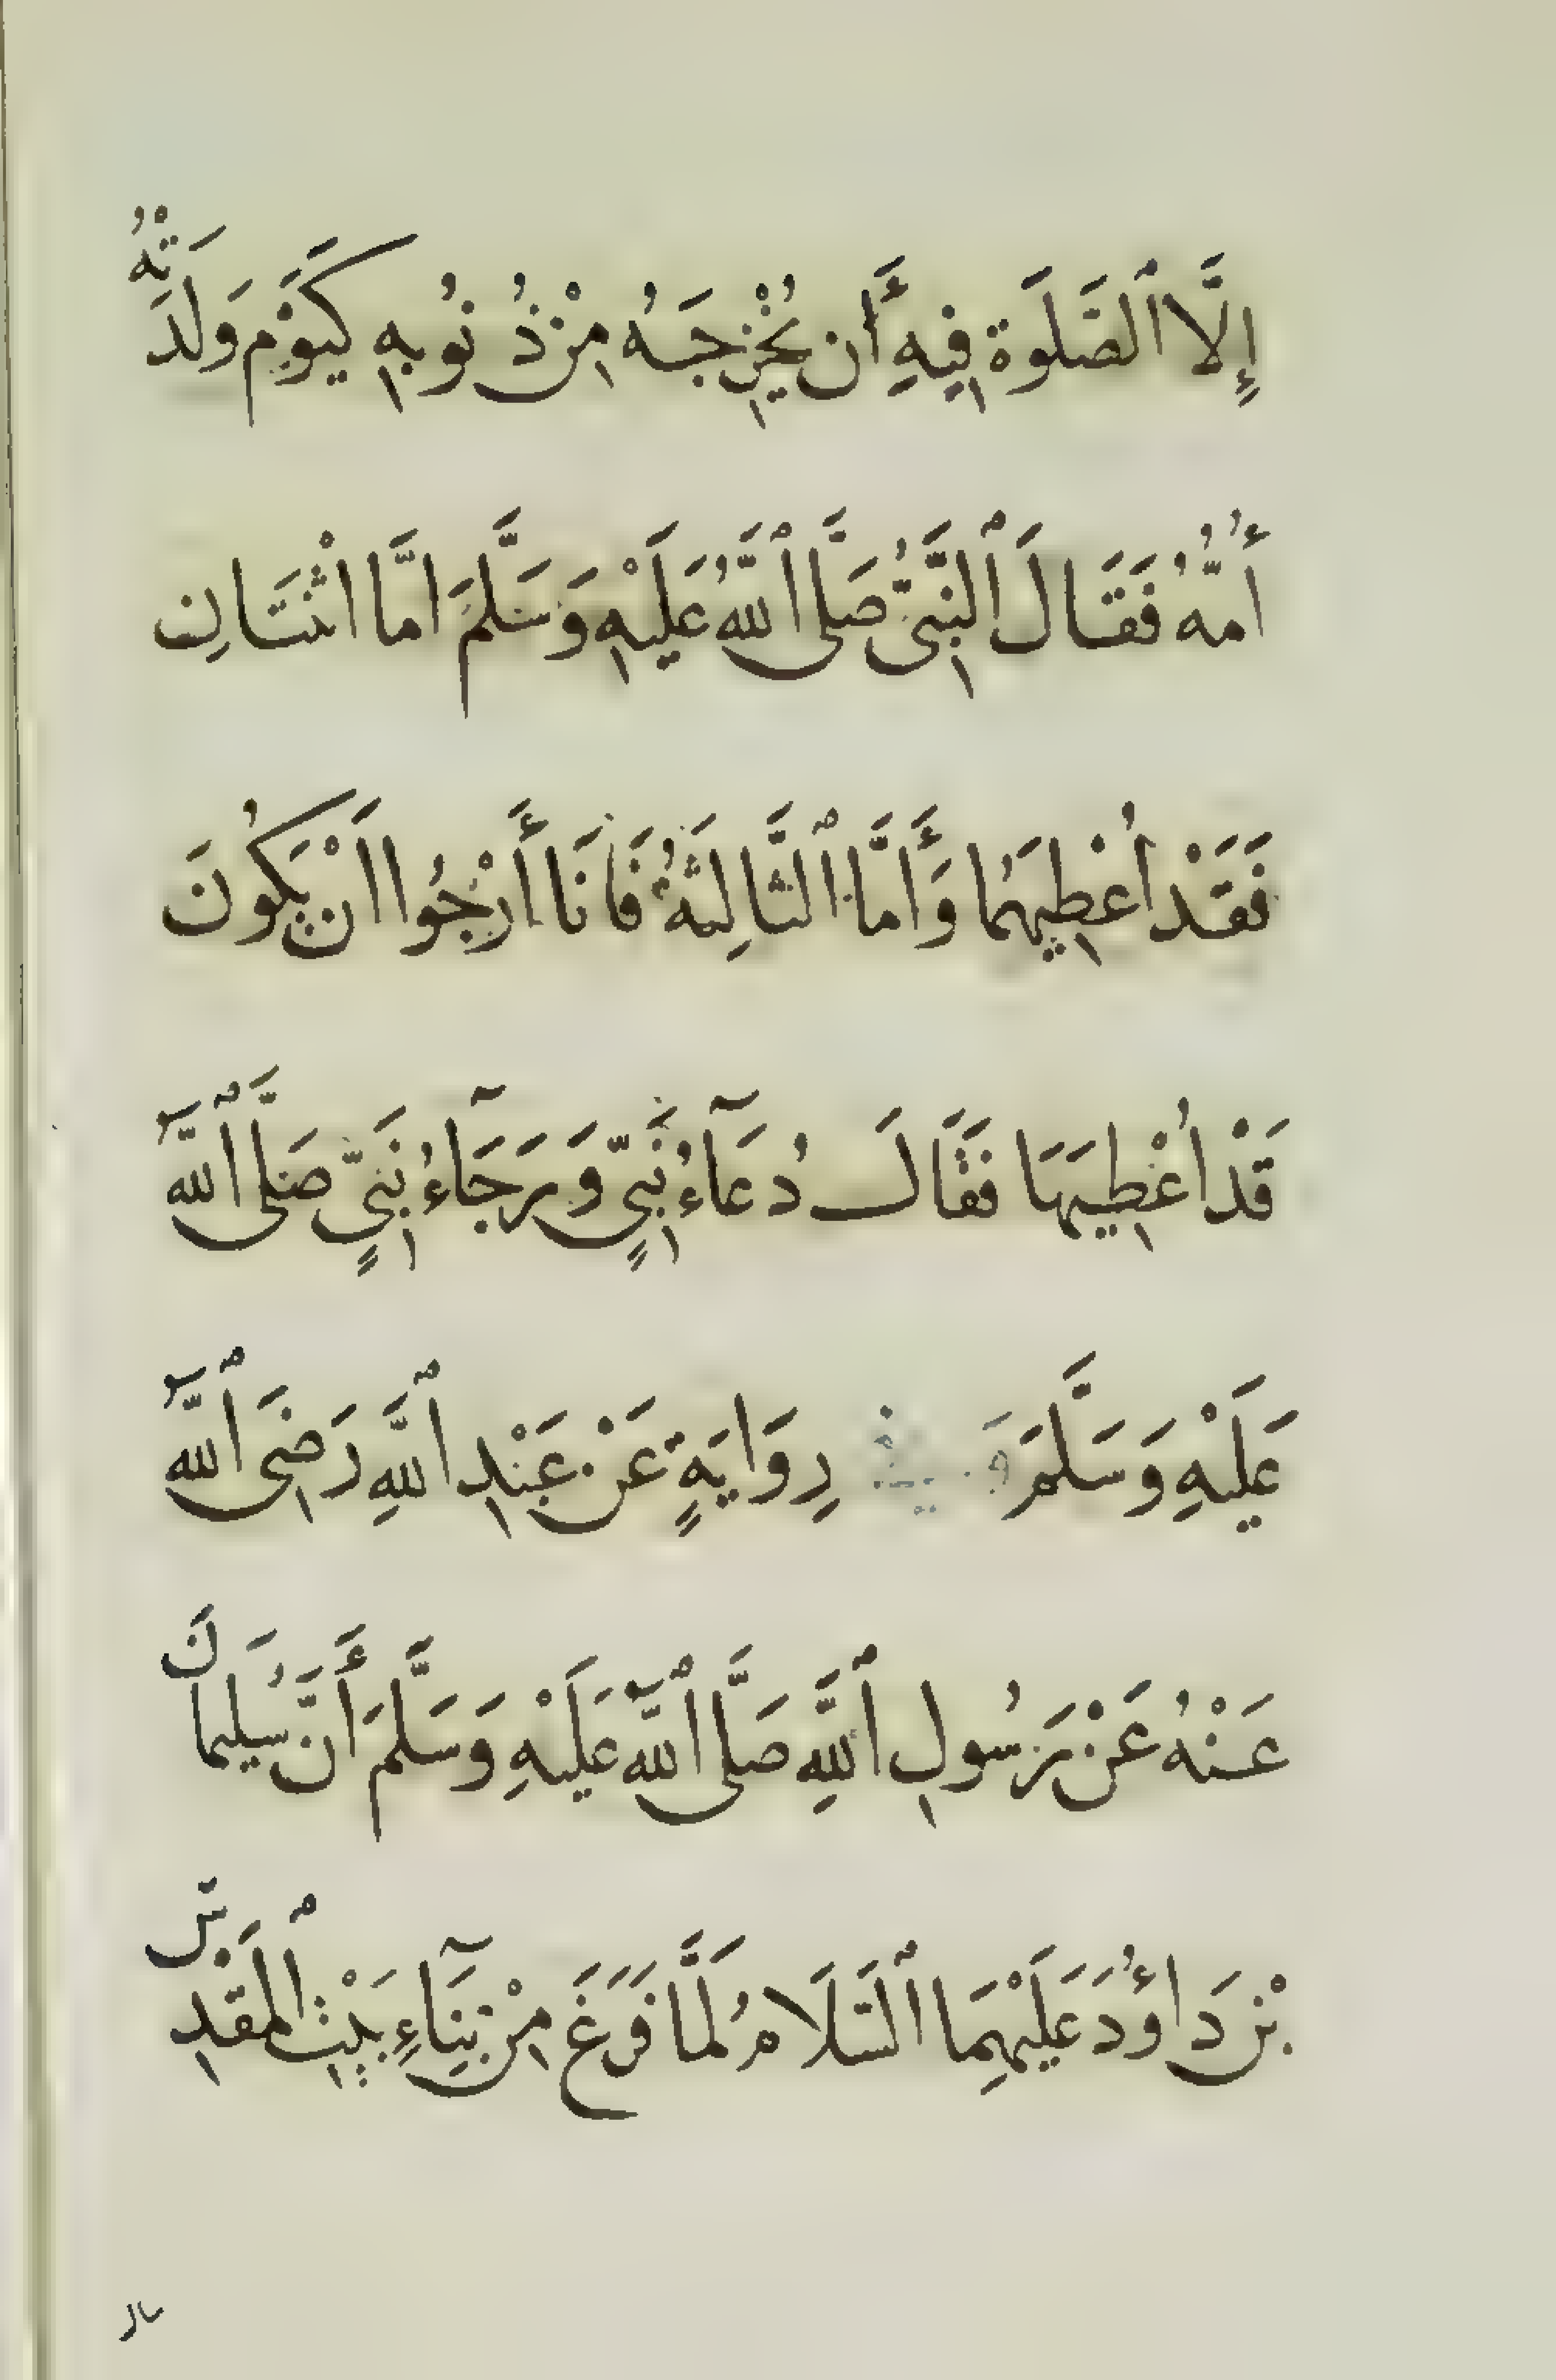 إِلَّا ٱلصَّلَوٰة فِيهِ أَن يُخْرِجَهُ مِنْ ذُنُوبِهِ كَيَوْمِ وَلَدَتْهُ
أُمُّهُ فَقَالَ ٱلنَّبِيُّ صَلَّى ٱللَّهُ عَلَيْهِ وَسَلَّمَ امَّا اثْنَتَانِ
فَقَدْ اُعْطِيَهُمَا وَأَمَّا ٱلثَّالِثَةُ فَانَا أَرْجُوا اَنْ يَكُونَ
قَدْ اُعْطِيَهَا فَقَالَ دُعَآءُ نَبِيٍّ وَرَجَآءُ نَبِيٍّ صَلَّى ٱللَّه
عَلَيْهِ وَسَلَّمَ وَفِي رِوَايَةٍ عَنْ عَبْدِ ٱللَّهِ رَضِيَ ٱللَّه
عَنْهُ عَنْ رَسُولِ ٱللَّهِ صَلَّى ٱللَّه عَلَيْهِ وَسَلَّمَ أَنَّ سُلَيمَانَ
بْنِ دَاؤُدَ عَلَيْهِمَا ٱلسَّلَامُ لَمَّا فَرَغَ مِنْ بِنَآءِ بَيْتِ ٱلمَقْدِسِ